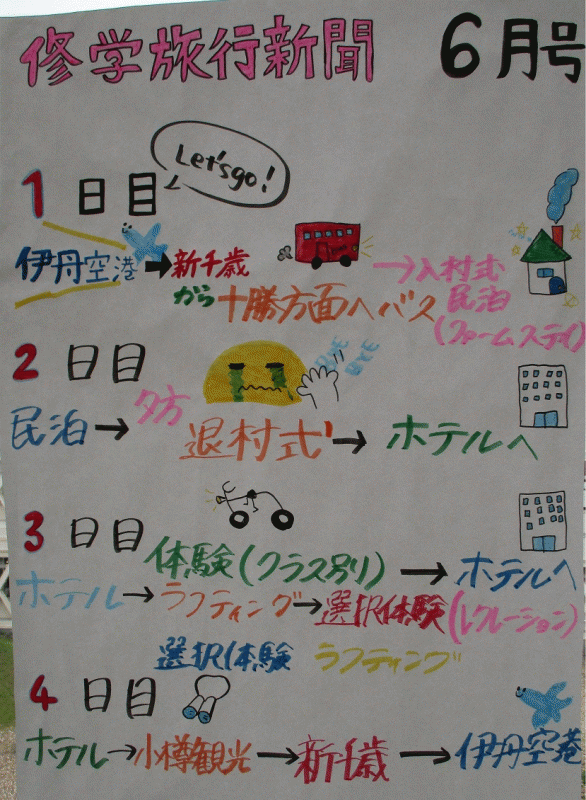 修学旅行新聞 6月号
Let's go!
1日目
伊丹空港→新千歳
から十勝方面へバス
→入村式
民泊
(ファームステイ)
2日目
BYE BYE
民泊→夕方 退村式→ホテルへ
3日目
体験(クラス別り)→ホテルへ
ホテル→ラフティング→選択体験(レクレーション)
選択体験 ラフティング
4日目
ホテル→小樽観光→新千歳→伊丹空港